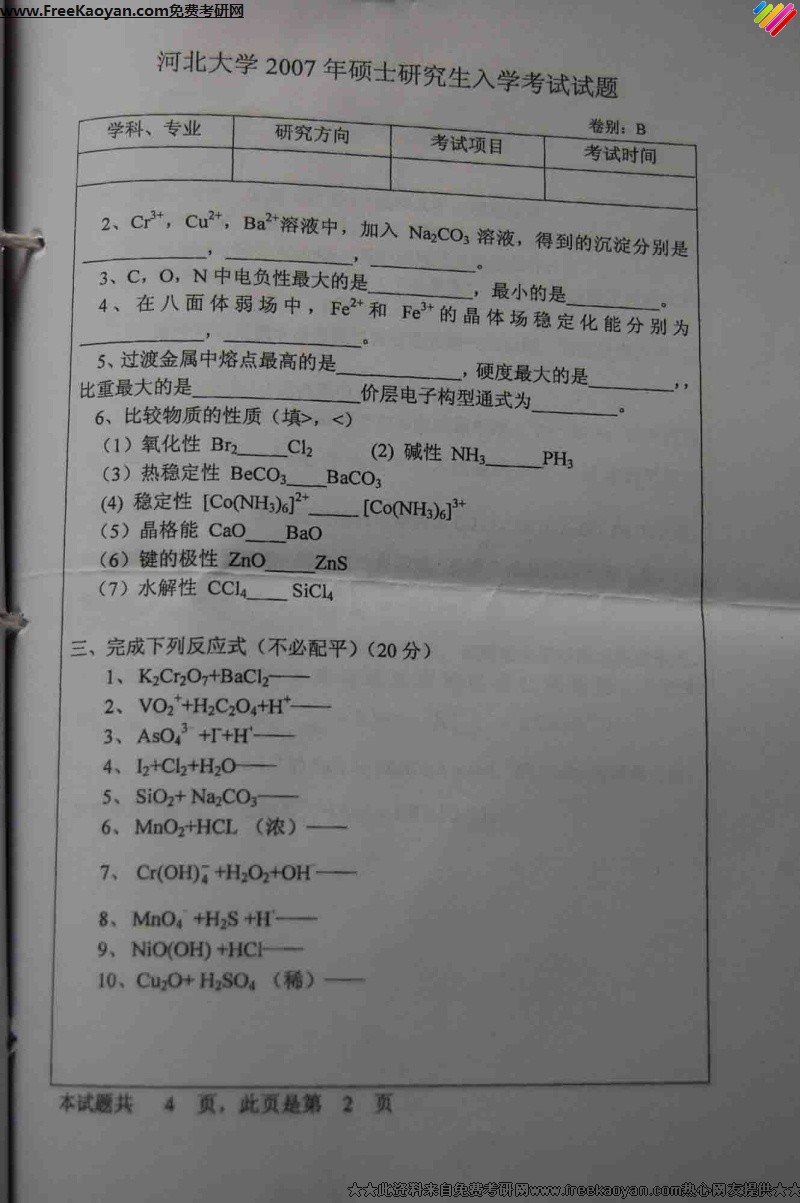 www.FreeKaoyan.com免费考研网
河北大学 2007 年硕士研究生入学考试试题
卷别：B
学科、专业 研究方向 考试项目 考试时间
2、Cr³⁺，Cu²⁺，Ba²⁺溶液中，加入 Na₂CO₃ 溶液，得到的沉淀分别是
____________，____________，____________。
3、C，O，N 中电负性最大的是__________，最小的是_________。
4、在八面体弱场中，Fe²⁺和 Fe³⁺的晶体场稳定化能分别为
____________，____________。
5、过渡金属中熔点最高的是____________，硬度最大的是________，，
比重最大的是________________价层电子构型通式为________。
6、比较物质的性质（填>，<）
（1）氧化性 Br₂_____Cl₂ (2) 碱性 NH₃_____PH₃
（3）热稳定性 BeCO₃____BaCO₃
(4) 稳定性 [Co(NH₃)₆]²⁺_____ [Co(NH₃)₆]³⁺
（5）晶格能 CaO____BaO
（6）键的极性 ZnO_____ZnS
（7）水解性 CCl₄____ SiCl₄
三、完成下列反应式（不必配平）（20 分）
1、K₂Cr₂O₇+BaCl₂——
2、VO₂⁺+H₂C₂O₄+H⁺——
3、AsO₄³⁻ +I⁻+H⁺——
4、I₂+Cl₂+H₂O——
5、SiO₂+ Na₂CO₃——
6、MnO₂+HCL （浓）——
7、Cr(OH)₄⁻ +H₂O₂+OH⁻——
8、MnO₄⁻ +H₂S +H⁺——
9、NiO(OH) +HCl——
10、Cu₂O+ H₂SO₄ （稀）——
本试题共 4 页，此页是第 2 页
☆☆此资料来自免费考研网www.freekaoyan.com热心网友提供☆☆